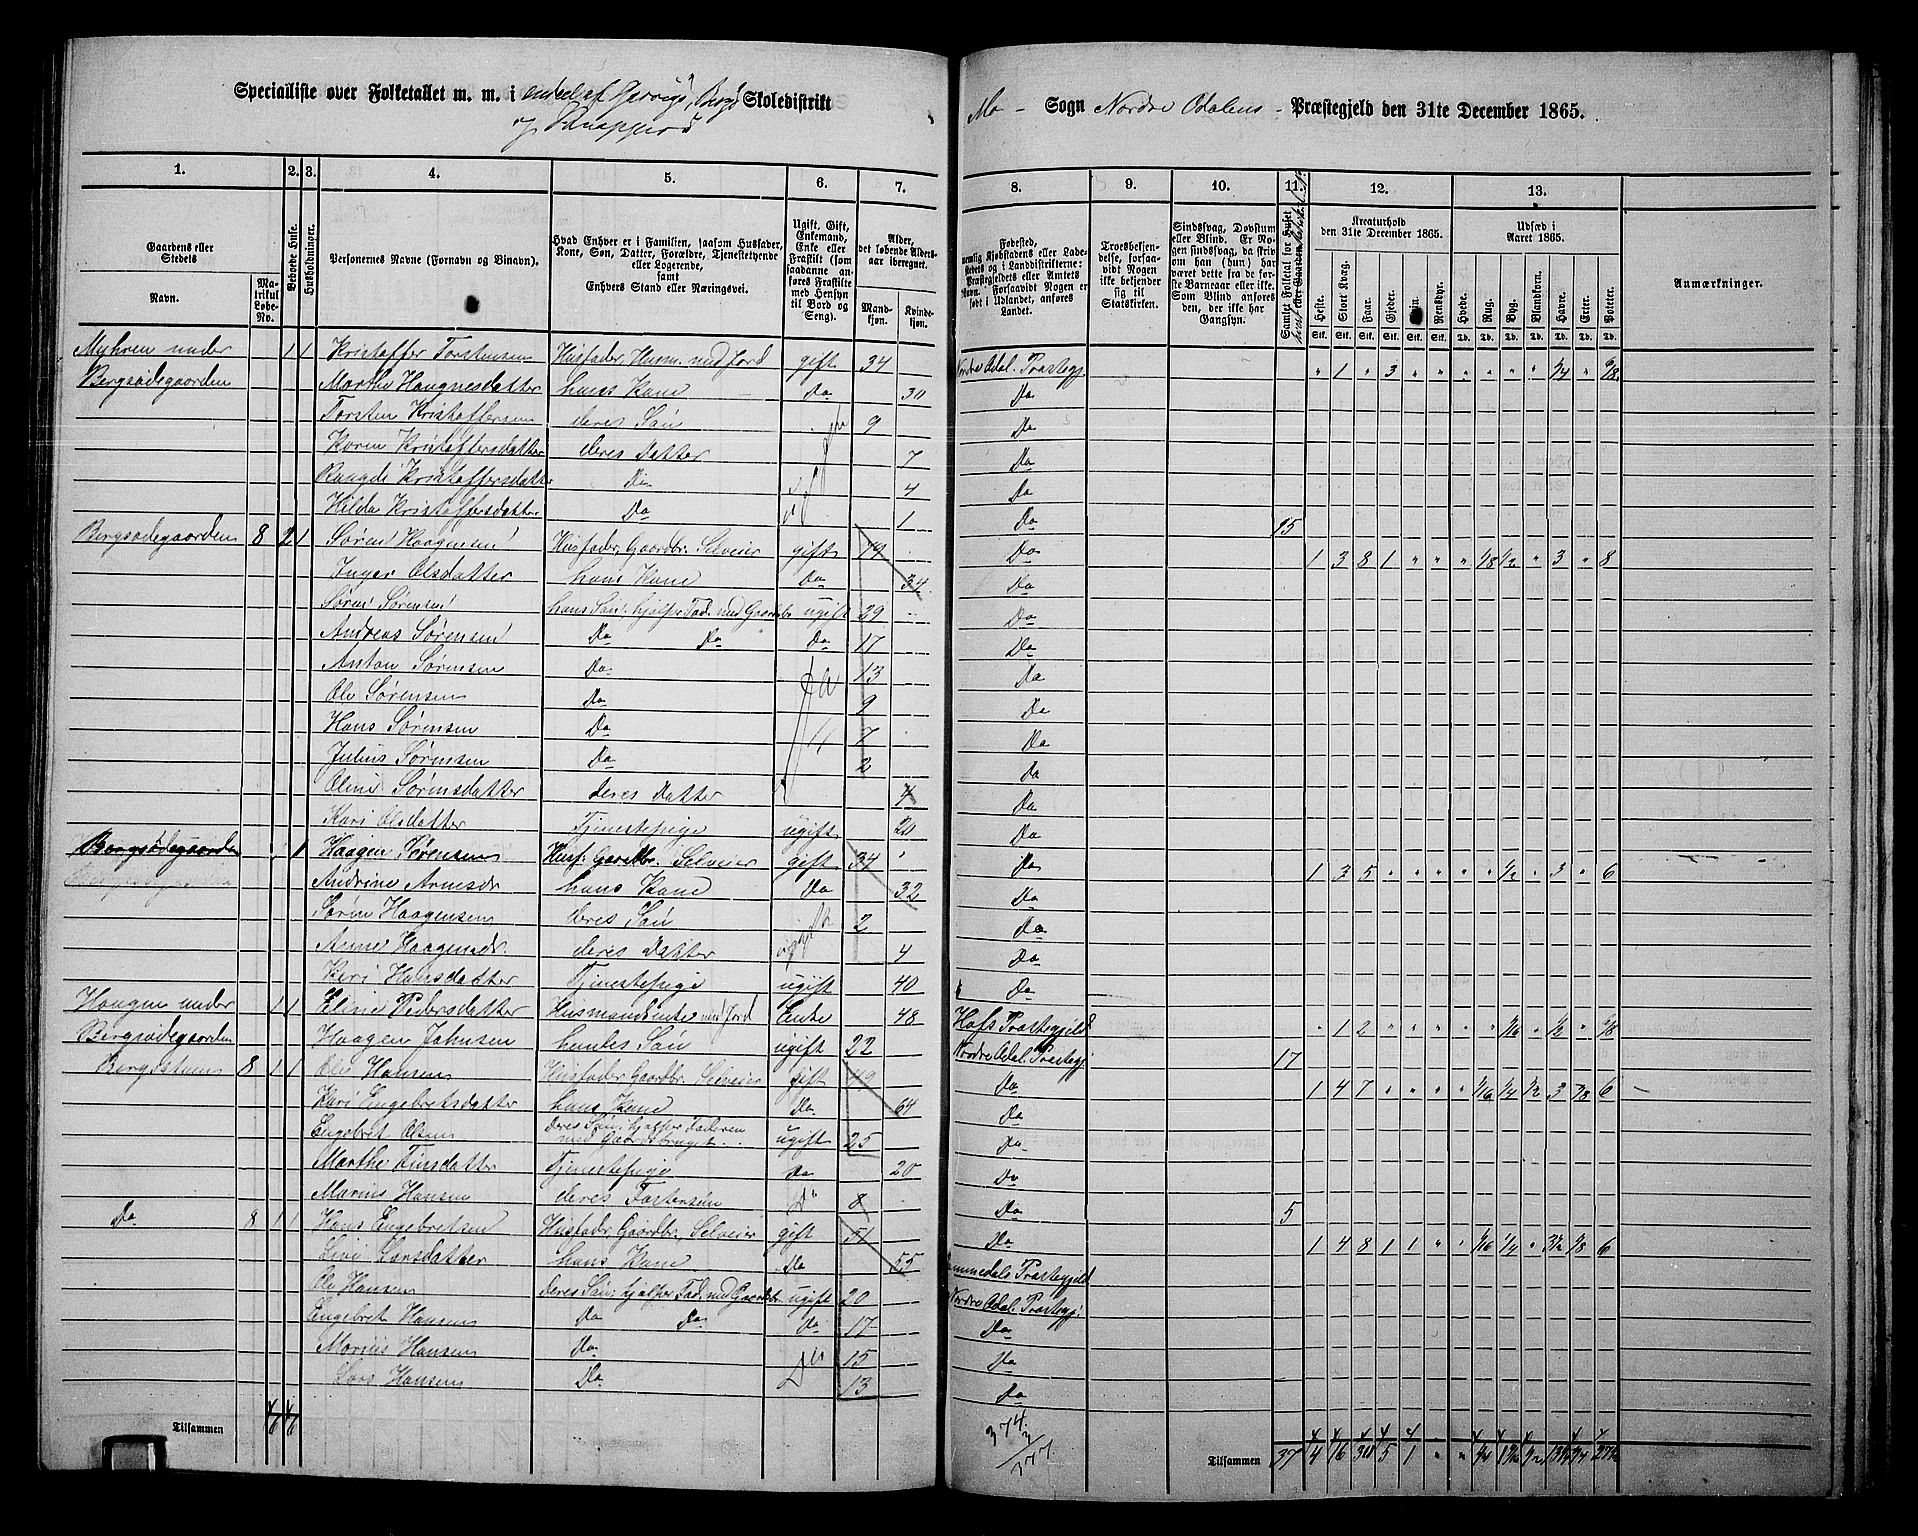 Specialliste over Folketallet m. m. i endeel af Skoledistrikt
Mo Sogn Nordre Odalens Præstegjeld den 31te December 1865.
1. 2. 3. 4. 5. 6. 7. 8. 9. 10. 11. 12. 13.
Gaardens eller Stedets Navn. Matrikul Løbe-No. Beboede Huse. Husholdninger. Personernes Navne (Fornavn og Binavn).
Hvad Enhver er i Familien, saasom Husfader, Kone, Søn, Datter, Forældre, Tjenestetyende eller Logerende, samt Enhvers Stand eller Næringsvei.
Ugift, Gift, Enkemand, Enke eller Fraskilt (som saadanne anføres Fraskilte med Hensyn til Bord og Seng).
Alder, det løbende Aldersaar iberegnet. Mandkjøn. Kvindekjøn.
Fødested,
Troesbekjendelse, forsaavidt Nogen ei bekjender sig til Statskirken.
Sindssvag, Døvstum eller Blind. Er Nogen sindssvag, da skriv om han (hun) har været dette fra de første Barneaar eller ikke. Som Blind anføres den, der ikke har Gangsyn.
Samlet Folketal for
Kreaturhold den 31te December 1865. Heste. Stort Kvæg. Faar. Gjeder. Sviin. Rensdyr.
Udsæd i Aaret 1865. Hvede. Rug. Byg. Blandkorn. Havre. Erter. Poteter.
Anmærkninger.
Myhren under 1 1 Kristoffer Torstensen Husfader, Husm. med Jord gift 34 Nordre Odal. Præstegj. " 1 " 3 " " " " " " 1/4 " 6/8
Bergsødegaarden Marthe Haagnesdatter hans Kone Do 30 Do
Torsten Kristoffersen deres Søn 9 Do
Karen Kristoffersdatter deres Datter 7 Do
Kristoffersdatter Do 4 Do
Hilda Kristoffersdatter Do 1 Do 15
Bergsødegaarden 8 2 1 Søren Haagensen Husfader, Gaardbr. Selveier gift Do 1 3 8 1 " " " 1/8 1/2 " 3 " 8
Inger Olsdatter hans Kone Do Do
Søren Sørensen hans Søn, hjælper Fad. med Gaardsbr ugift 29 Do
Andreas Sørensen Do Do Do 17 Do
Anton Sørensen Do 13 Do
Ole Sørensen Do 9 Do
Hans Sørensen Do 7 Do
Julius Sørensen Do 2 Do
Oline Sørensdatter deres Datter 4 Do
Kari Olsdatter Tjenestepige ugift 20 Do
Bergsødegaarden 1 Haagen Sørensen Husf. Gaardbr. Selveier gift 34 Do 1 3 5 " " " " " 1/2 " 3 " 6
Andrine Arnesdr hans Kone Do 32 Do
Søren Haagensen deres Søn ugift 2 Do
Anne Haagensdr. deres Datter 4 Do
Kari Hansdatter Tjenestepige ugift 40 Do
Haagen under 1 1 Eline Pedersdatter Husmandsenke med Jord Enke 48 Hofs Præstegjeld " 1 2 " " " " " 1/16 " 1/2 " 6/8
Bergsødegaarden Haagen Johnsen hendes Søn ugift 22 Nordre Odal. Præstegj. 17
8 1 1 Ole Hansen Husfader, Gaardbr. Selveier gift 49 Do 1 4 7 " " " " 1/16 1/4 1/2 3 3/8 6
Kari Engebretsdatter hans Kone Do 64 Do
Engebret Olsen deres Søn, hjælper Faderen med Gaardsbruget ugift 25 Do
Marthe Finsdatter Tjenestepige Do 20 Do
Marius Hansen deres Fostersøn Do 8 Do 5
Do 8 1 1 Hans Engebretsen Husfader, Gaardbr. Selveier gift 51 Do 1 4 8 1 1 " " 1/16 1/4 " 3 1/2 1/8 6
Larsdatter hans Kone Do 55 Præstegjeld
Ole Hansen deres Søn, hjælper Fad. med Gaardsbr ugift 20 Nordre Odal. Præstegj.
Engebret Hansen Do Do Do 17 Do
Marius Hansen Do Do 15 Do
Lars Hansen Do 13 Do
Tilsammen
374
3
377
Tilsammen 37 4 16 30 5 1